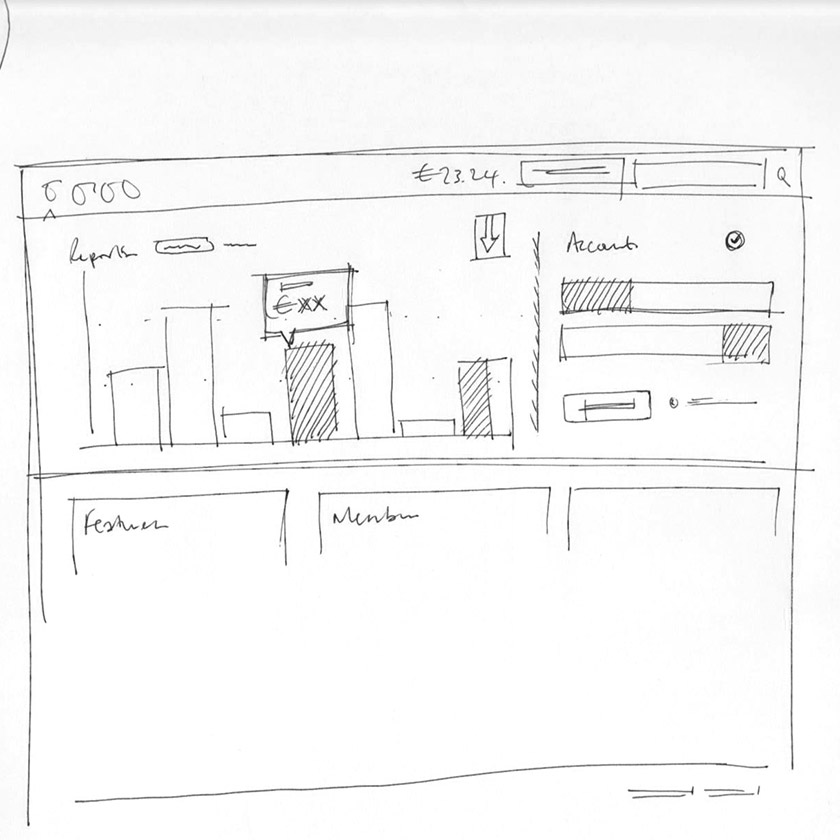 €23.24.
Reports
Account
€xx
Features
Members